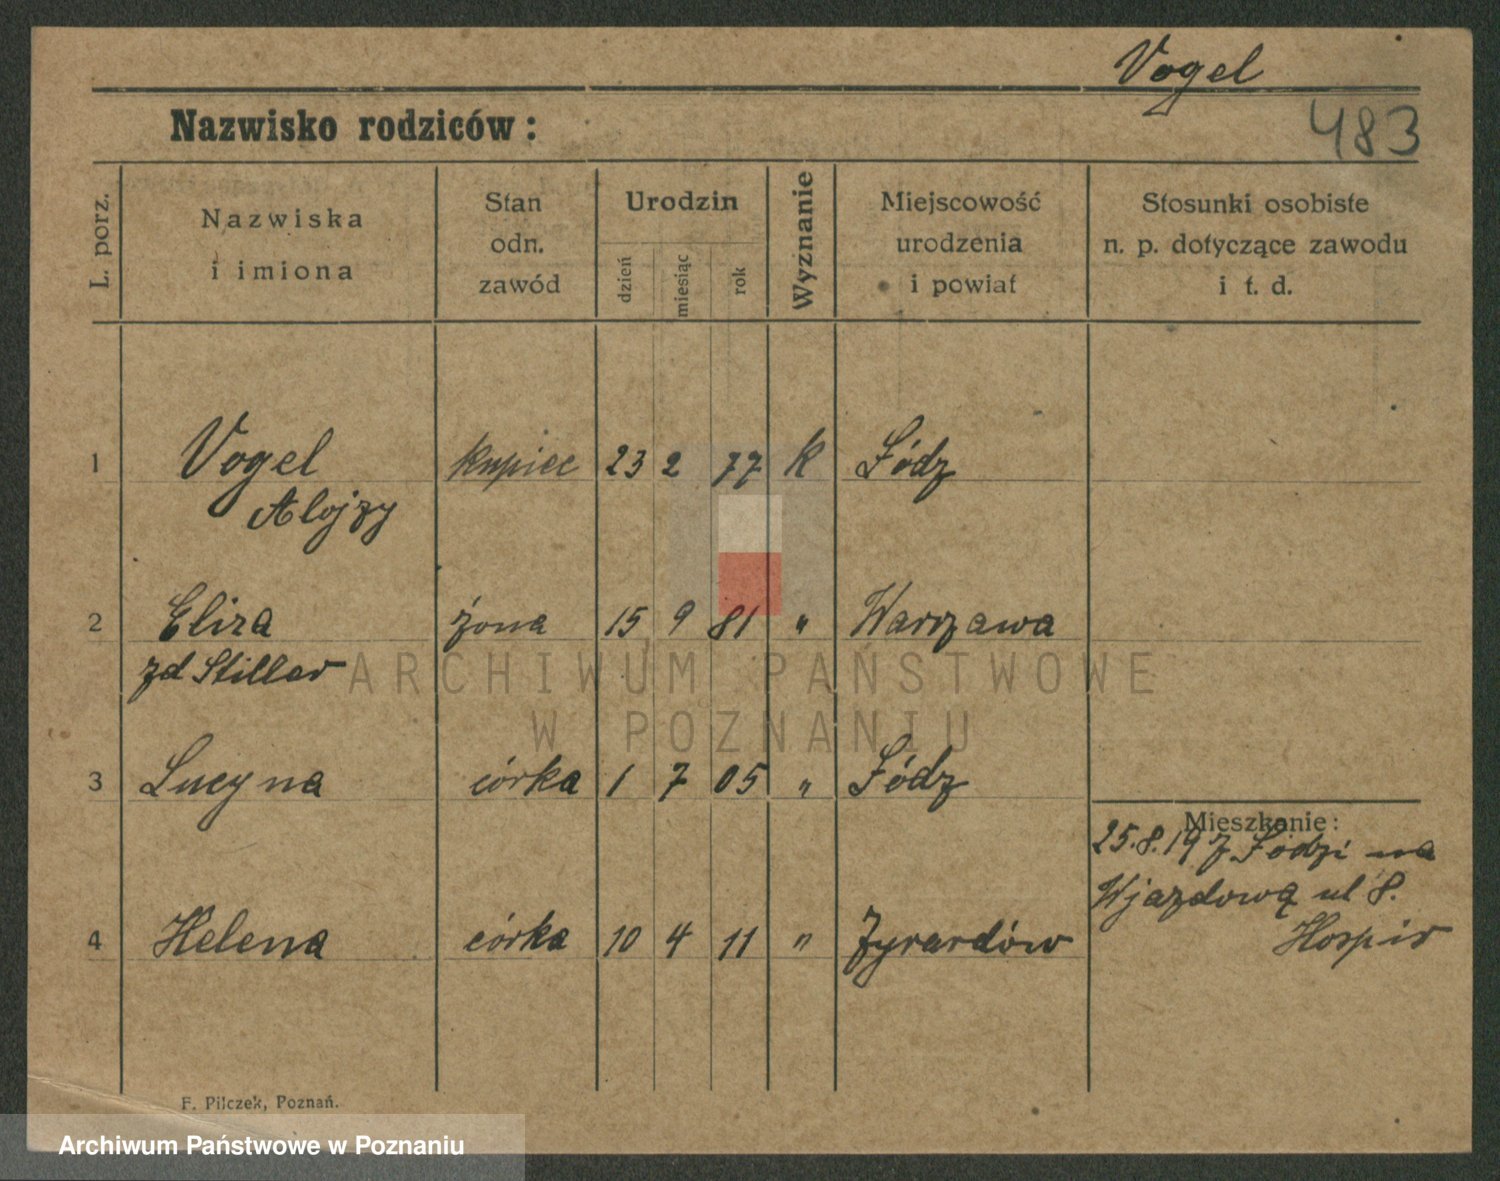 Vogel
Nazwisko rodziców:
483
L. porz.
Nazwiska
i imiona
Stan
odn.
zawód
Urodzin
dzień
miesiąc
rok
Wyznanie
Miejscowość
urodzenia
i powiat
Stosunki osobiste
n. p. dotyczące zawodu
i t. d.
1 Vogel kupiec 23 2 77 k Łódz
Alojzy
2 Eliza żona 15 9 81 " Warszawa
zd Stiller
ARCHIWUM PAŃSTWOWE
W POZNANIU
3 Lucyna córka 1 7 05 " Łódz
Mieszkanie:
25.8.19 z Łodzi na
Wjazdową ul 8.
4 Helena córka 10 4 11 " Żyrardów
F. Pilczek, Poznań.
Archiwum Państwowe w Poznaniu